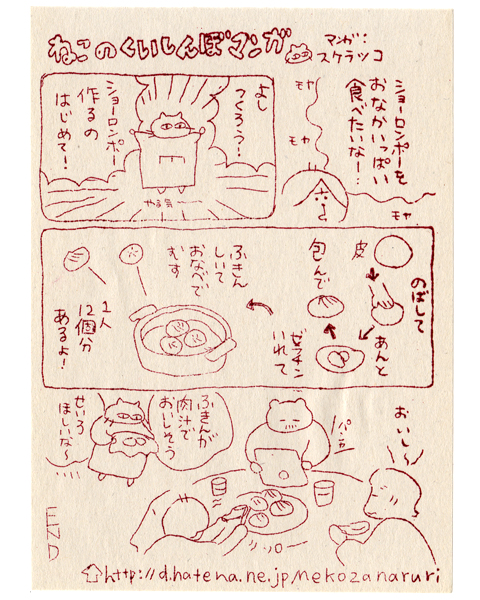 ねこのくいしんぼマンガ
マンガ:
スケラッコ
ショーロンポーを
おなかいっぱい
食べたいなー…
モヤ
モヤ
モヤ
よし
つくろう!
ショーロンポー
作るの
はじめて!
やる気
皮
のばして
あんと
ゼラチン
いれて
包んで
ふきん
しいて
おなべで
むす
1人
12個分
あるよ!
おいしー
パシャ
ふきんが
肉汁で
おいしそう
せいろ
ほしいな〜
END
http://d.hatena.ne.jp/nekozanaruri